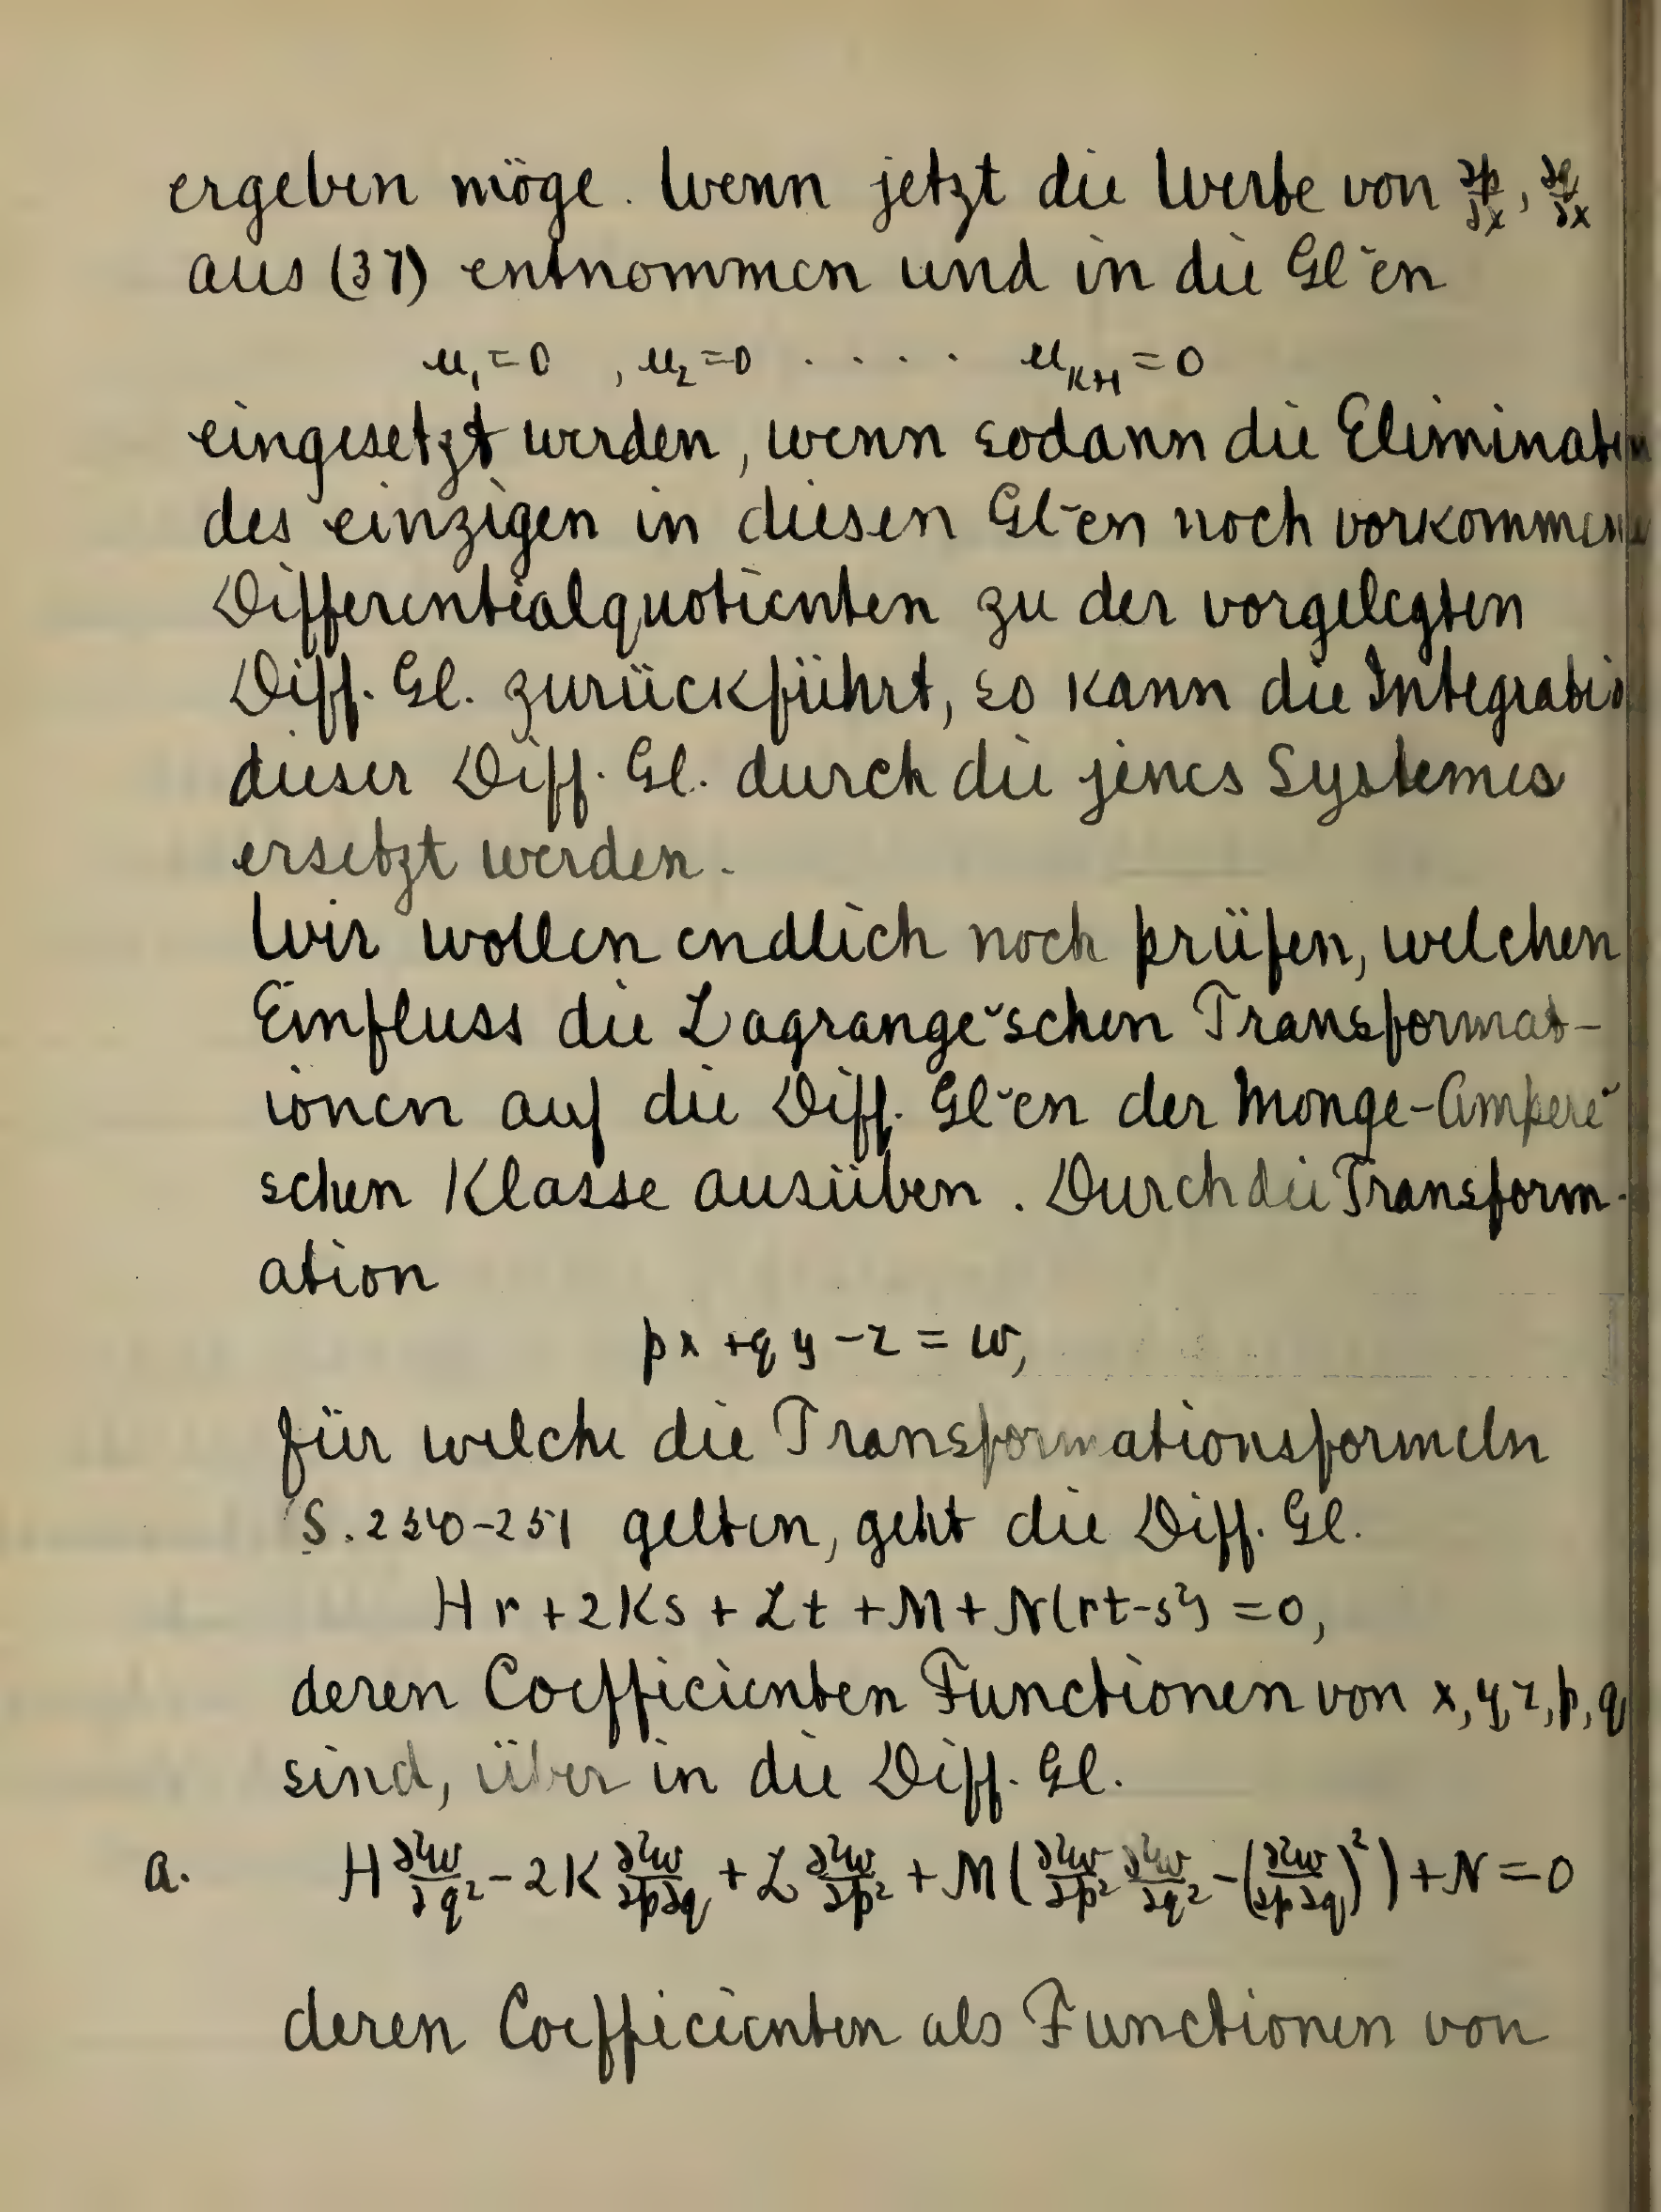 ergeben möge. Wenn jetzt die Werte von ∂p/∂x, ∂q/∂x
aus (37) entnommen und in die Gl-en
u₁=0 , u₂=0 . . . . . u_{κ+1}=0
eingesetzt werden, wenn sodann die Elimination
des einzigen in diesen Gl-en noch vorkommen
Differentialquotienten zu der vorgelegten
Diff. Gl. zurückführt, so kann die Integratio
dieser Diff. Gl. durch die jenes Systemes
ersetzt werden.
Wir wollen endlich noch prüfen, welchen
Einfluss die Lagrange'schen Transformat-
ionen auf die Diff. Gl-en der Monge-Ampere'
schen Klasse ausüben. Durch die Transform-
ation
px + qy - z = w,
für welche die Transformationsformeln
S. 250-251 gelten, geht die Diff. Gl.
Hr + 2Ks + Lt + M + N(rt-s²) = 0,
deren Coefficienten Functionen von x, y, z, p, q
sind, über in die Diff. Gl.
a. H ∂²w/∂q² - 2K ∂²w/∂p∂q + L ∂²w/∂p² + M(∂²w/∂p² ∂²w/∂q² - (∂²w/∂p∂q)²) + N = 0
deren Coefficienten als Functionen von